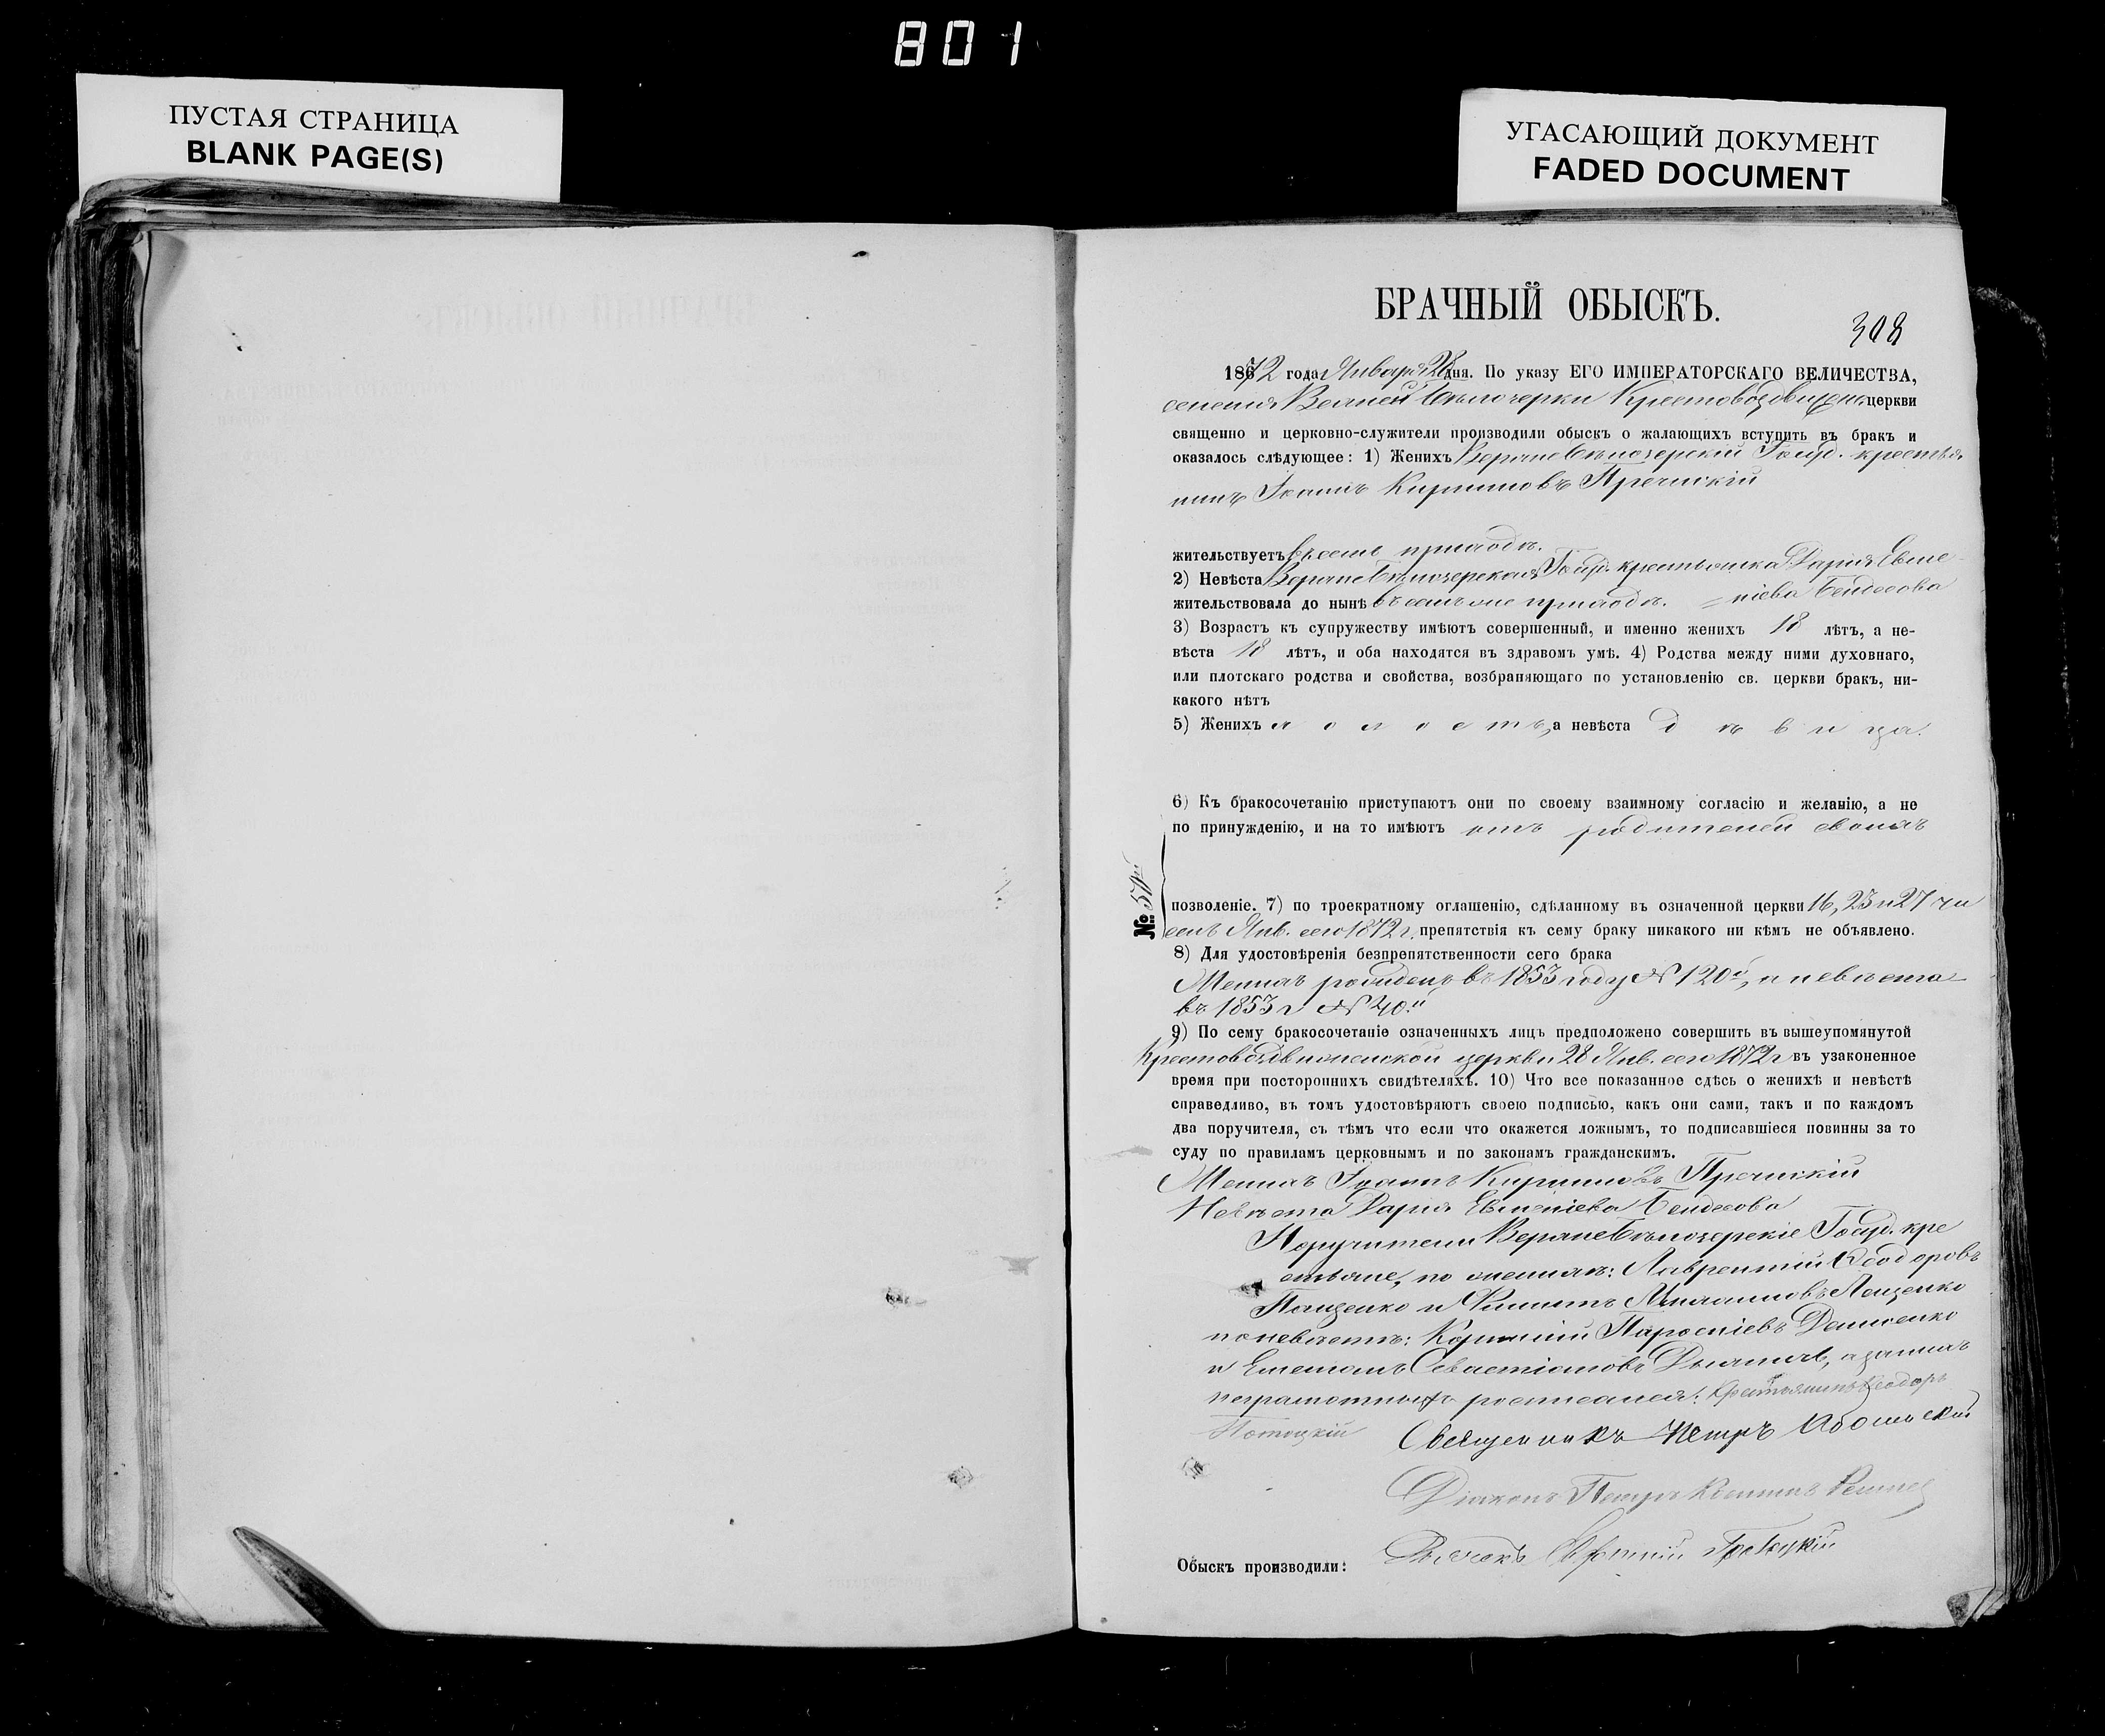 801
ПУСТАЯ СТРАНИЦА
BLANK PAGE(S)
УГАСАЮЩИЙ ДОКУМЕНТ
FADED DOCUMENT
БРАЧНЫЙ ОБЫСКЪ.
308
1872 года Января 28 дня. По указу ЕГО ИМПЕРАТОРСКАГО ВЕЛИЧЕСТВА,
селенія Великой Бѣлозерки Крестовоздвиженс. церкви
священно и церковно-служители производили обыскъ о жалающихъ вступить въ бракъ и
оказалось слѣдующее: 1) Женихъ Верхнебѣлозерскій Госуд. крестья
нинъ Іоаннъ Кириловъ
жительствуетъ въ семъ приходѣ.
2) Невѣста Верхнебѣлозерская Госуд. крестьянка Дарія Евме
жительствовала до нынѣ въ семъ же приходѣ. = ніева
3) Возрастъ къ супружеству имѣютъ совершенный, и именно женихъ 18 лѣтъ, а не-
вѣста 18 лѣтъ, и оба находятся въ здравомъ умѣ. 4) Родства между ними духовнаго,
или плотскаго родства и свойства, возбраняющаго по установленію св. церкви бракъ, ни-
какого нѣтъ
5) Женихъ холостъ, а невѣста дѣвица.
6) Къ бракосочетанію приступаютъ они по своему взаимному согласію и желанію, а не
по принужденію, и на то имѣютъ отъ родителей своихъ
№ 50й
позволеніе. 7) по троекратному оглашенію, сдѣланному въ означенной церкви 16, 23 и 27 чи
селъ Янв. сего 1872 г. препятствія къ сему браку никакого ни кѣмъ не объявлено.
8) Для удостовѣренія безпрепятственности сего брака
Женихъ рожденъ въ 1853 году № 120й, и невѣста
въ 1853 г № 40й
9) По сему бракосочетаніе означенныхъ лицъ предположено совершить въ вышеупомянутой
Крестовоздвиженской церкви 28 Янв. сего 1872 г въ узаконенное
время при постороннихъ свидѣтеляхъ. 10) Что все показанное сдѣсь о женихѣ и невѣстѣ
справедливо, въ томъ удостовѣряютъ своею подписью, какъ они сами, такъ и по каждомъ
два поручителя, съ тѣмъ что если что окажется ложнымъ, то подписавшіеся повинны за то
суду по правиламъ церковнымъ и по законамъ гражданскимъ.
Женихъ Іоаннъ Кириловъ
Невѣста Дарія Евменіева
Поручители Верхнебѣлозерскіе Госуд. кре
стьяне, по женихѣ: Лаврентій Ѳеодоровъ
и Филипъ
по невѣстѣ: Корнилій
и Емеліанъ Севастіановъ а за нихъ
неграмотныхъ росписался: Крестьянинъ Ѳеодоръ
Потоцкій
Священникъ Петръ
Діаконъ Петръ
Дьячокъ
Обыскъ производили: